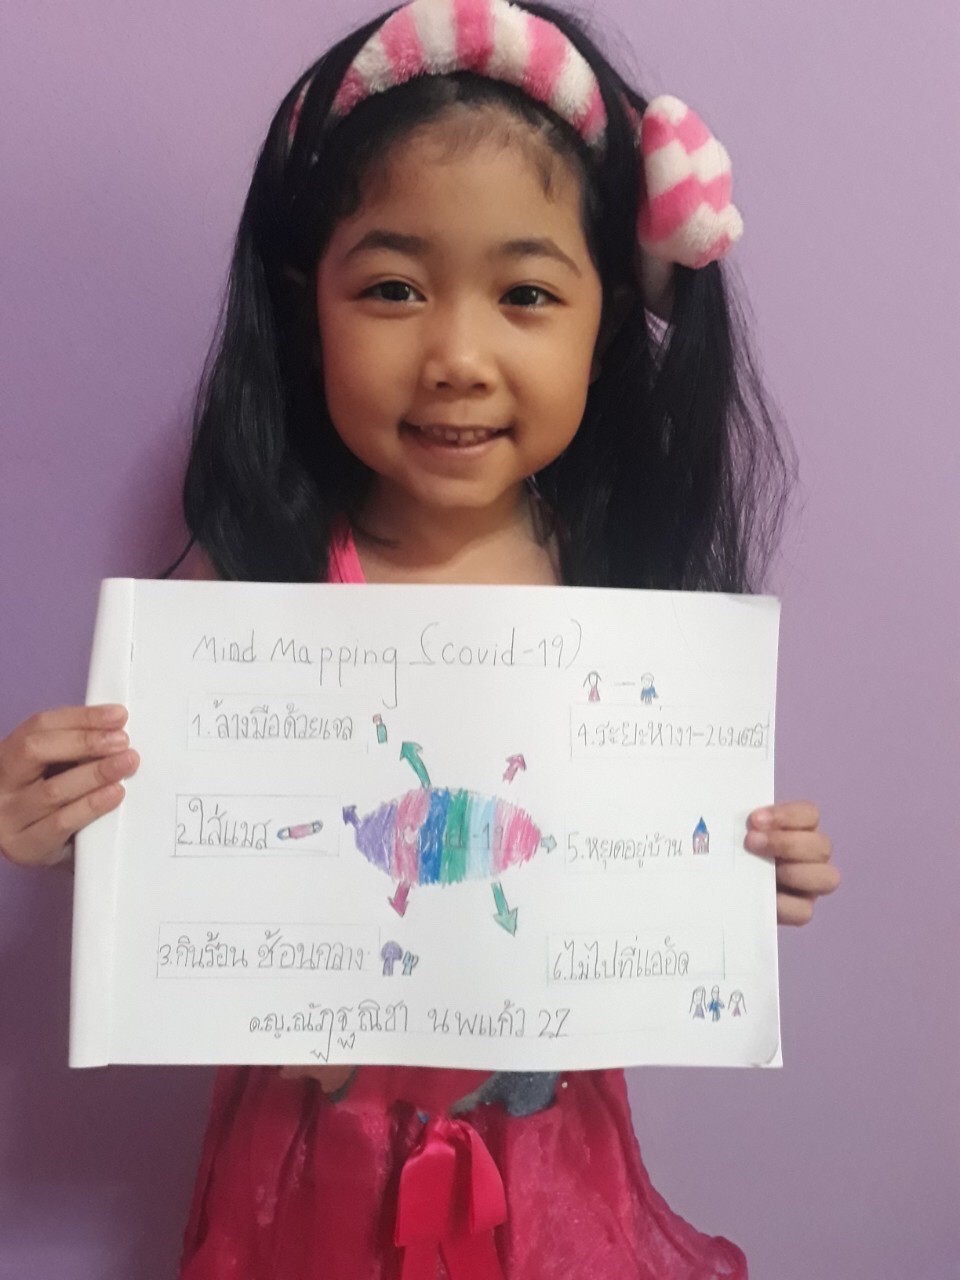 Mind Mapping (covid-19)
1.ล้างมือด้วยเจล
2.ใส่แมส
3.กินร้อน ช้อนกลาง
4.ระยะห่าง1-2เมตร
5.หยุดอยู่บ้าน
6.ไม่ไปที่แออัด
covid-19
ด.ญ.ณัฏฐณิชา นพแก้ว 27